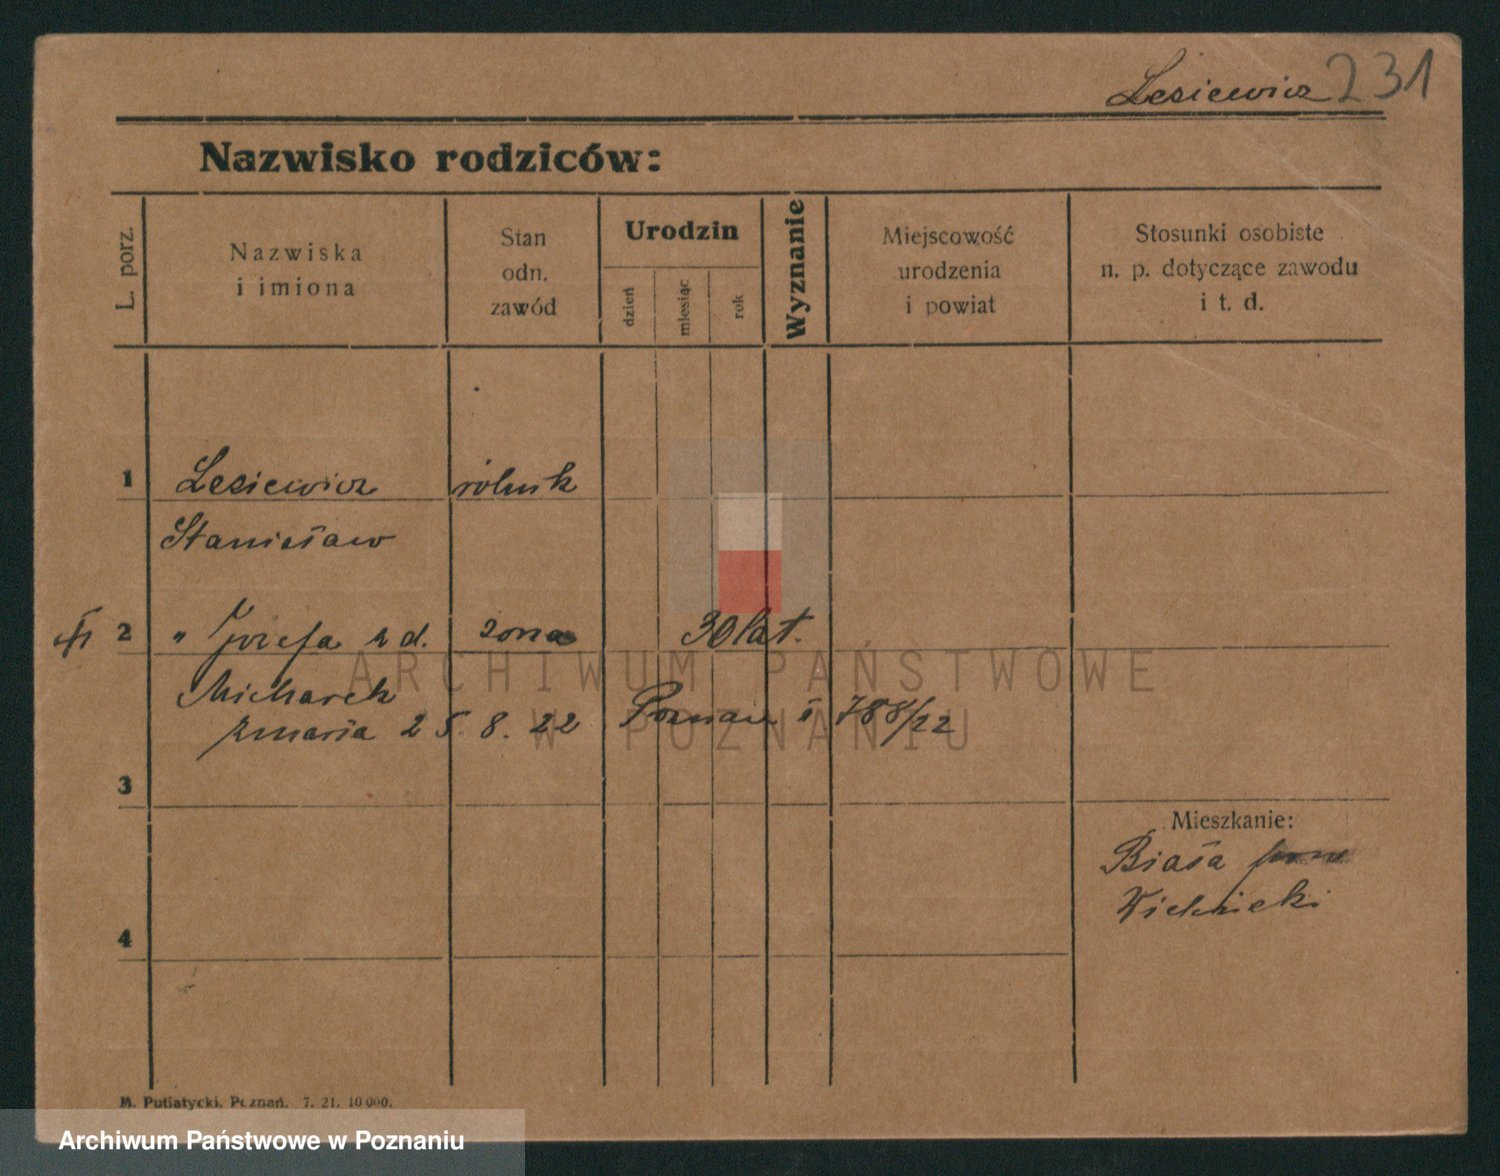 Lesiewicz 231
Nazwisko rodziców:
L. porz.
Nazwiska
i imiona
Stan
odn.
zawód
Urodzin
dzień
miesiąc
rok
Wyznanie
Miejscowość
urodzenia
i powiat
Stosunki osobiste
n. p. dotyczące zawodu
i t. d.
1 Lesiewicz rolnik
Stanisław
2 " Józefa z d. żona 30 lat.
Michałek
zmarła 25. 8. 22 Poznań 788/22
3
Mieszkanie:
Biała
4
M. Putiatycki, Poznań. 7. 21. 10 000.
ARCHIWUM PAŃSTWOWE
W POZNANIU
Archiwum Państwowe w Poznaniu